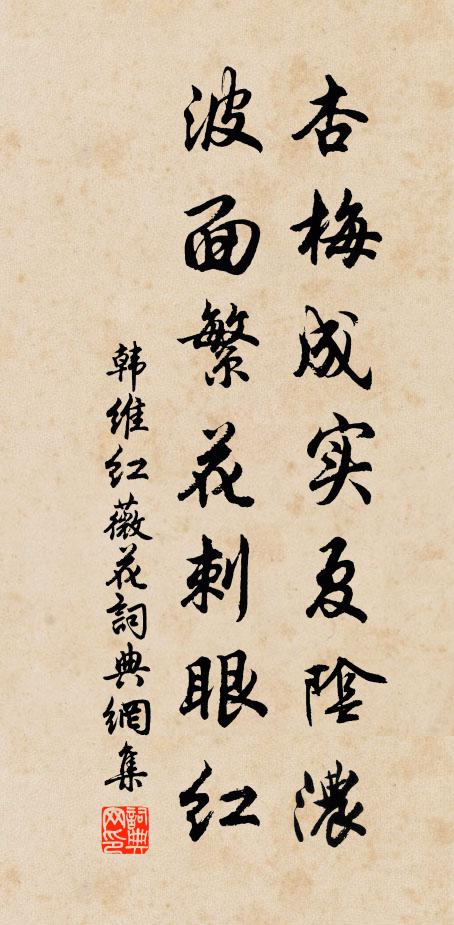 杏梅成实夏阴浓
波面繁花刺眼红
韩维红薇花詞典網集
詞典网印